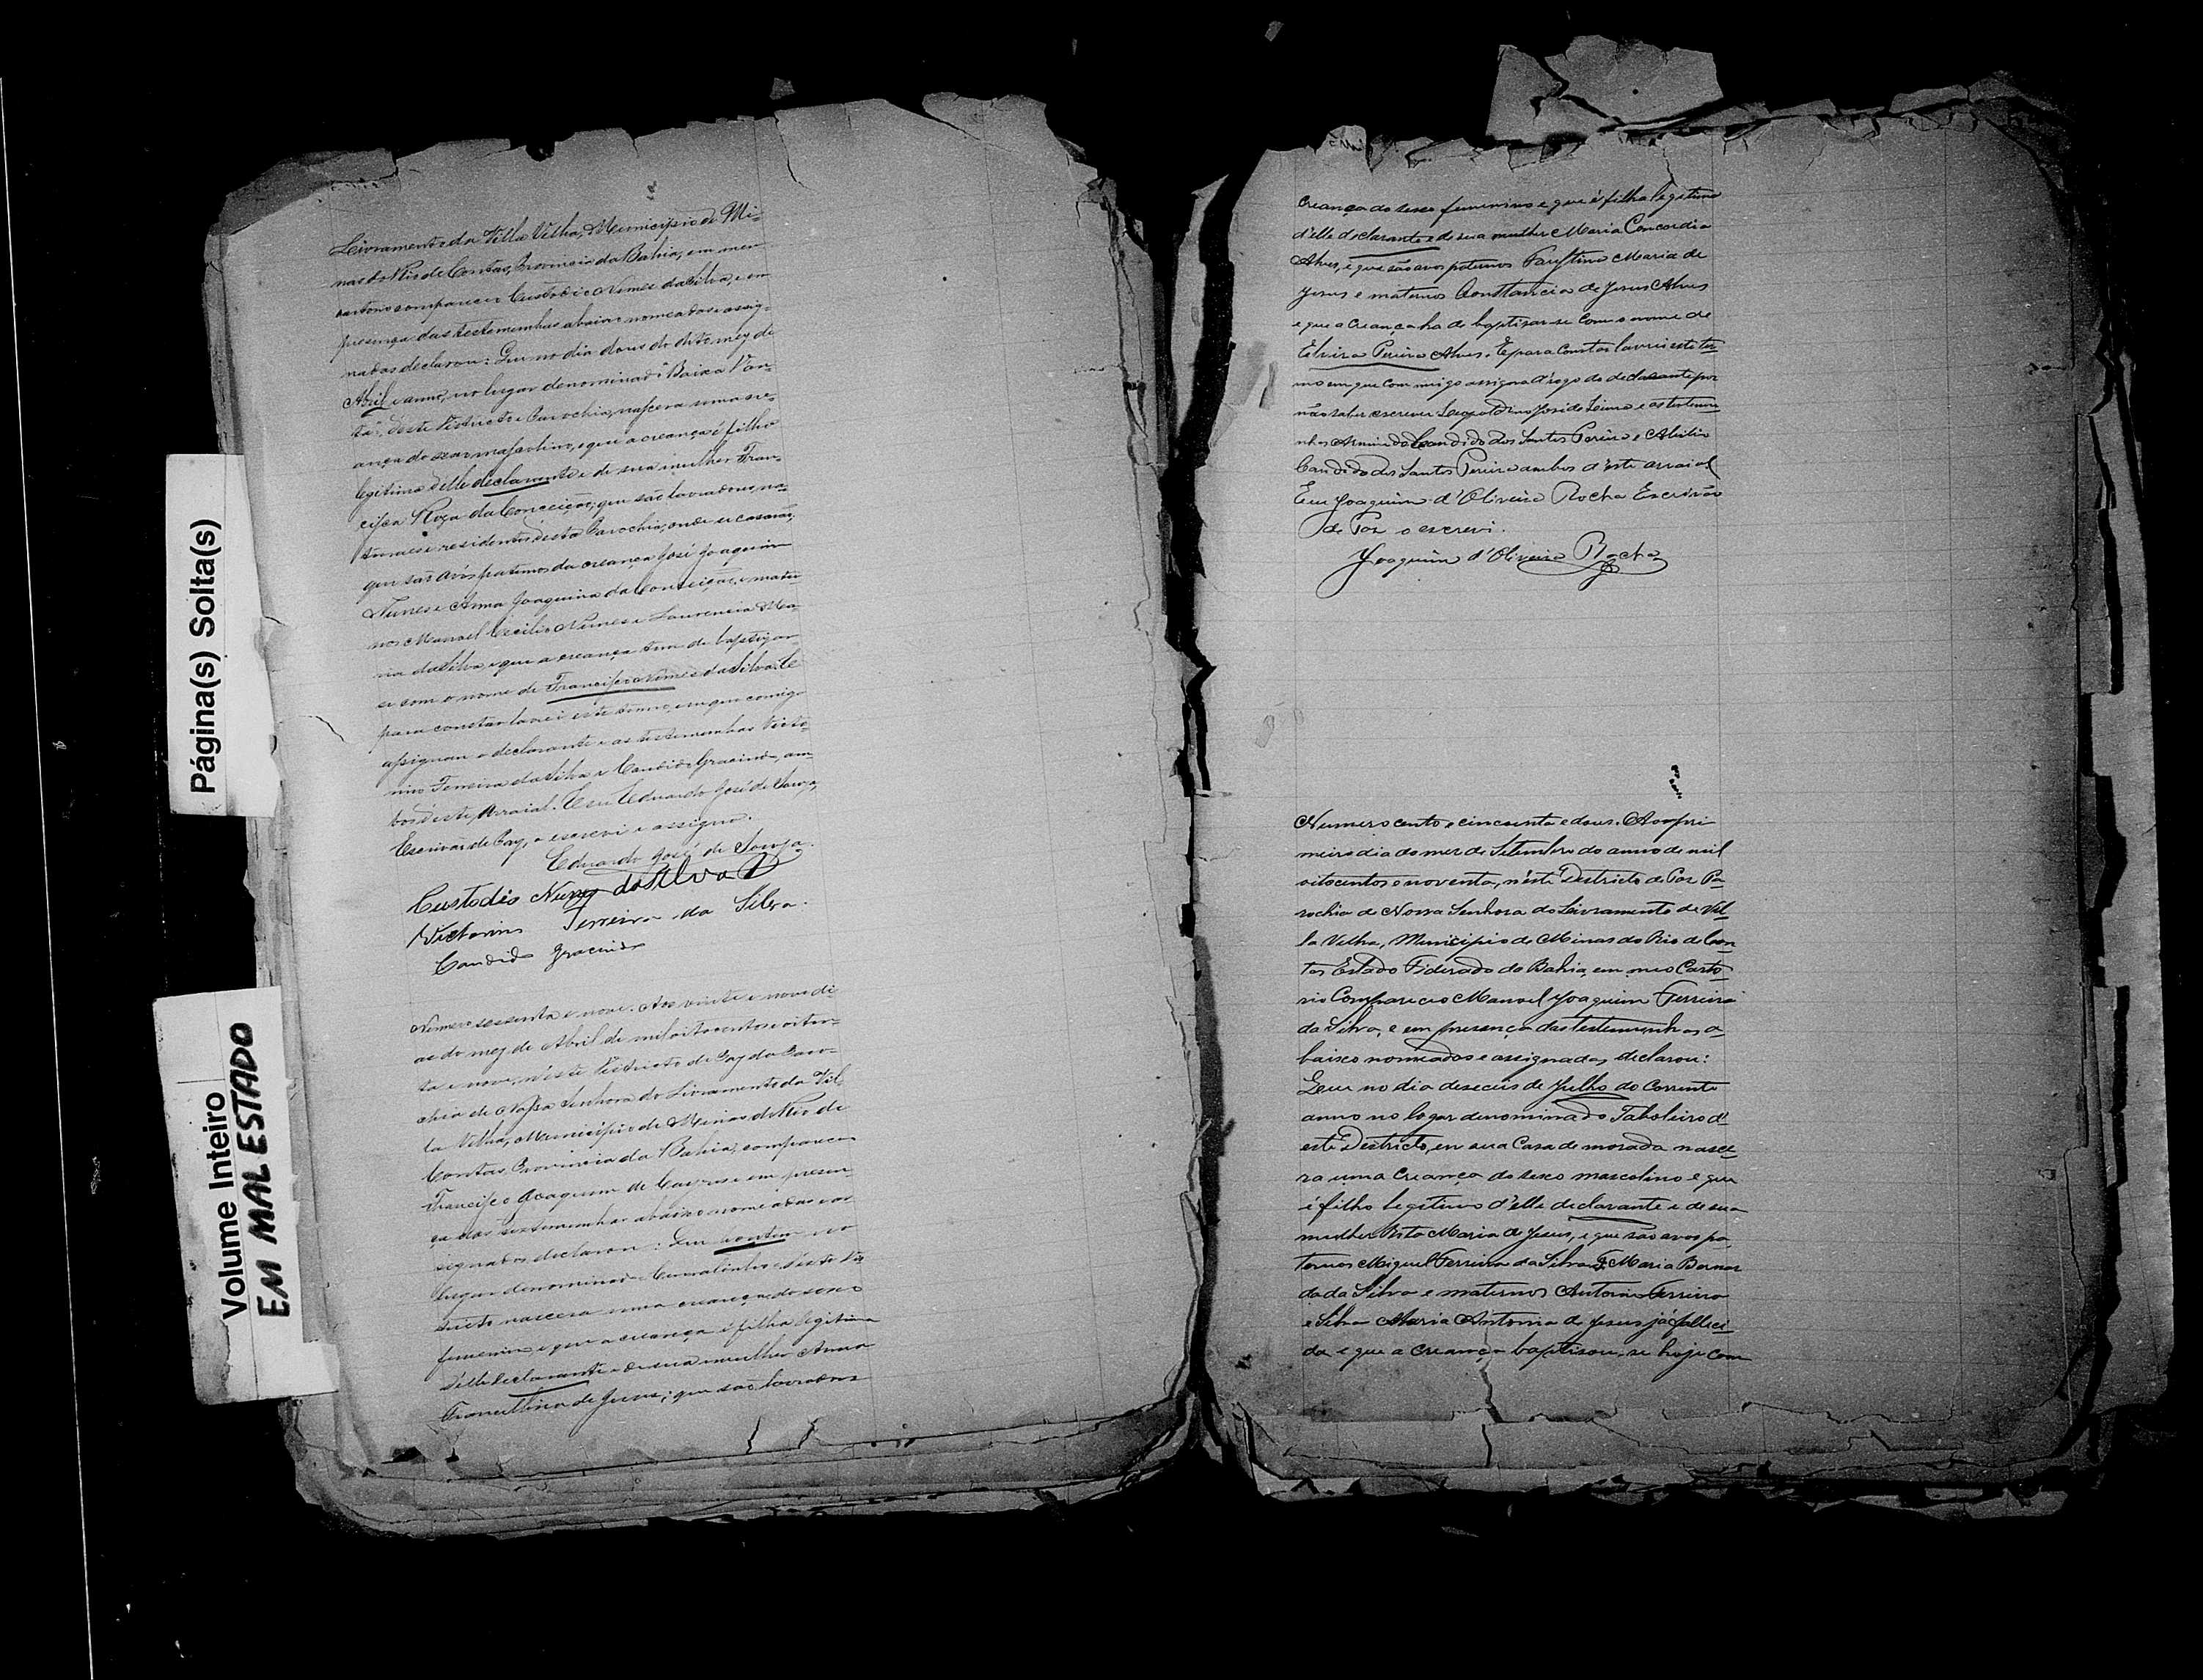 Página(s) Solta(s)
Volume Inteiro
EM MAL ESTADO
Livramento da Villa Velha, Municipio de Mi-
nas do Rio de Contas, Provincia da Bahia, em meu
cartorio compareceu Custodio Nunes da Silva, e em
presença das testemunhas abaixo nomeadas e assig-
nadas declarou: Que no dia dous do dito mez de
Abril e anno, no lugar denominado "Baixa Van-
ta", deste Districto e Parochia, nascera uma cre-
ança do sexo masculino, e que a creança é filho
legitimo delle declarante e de sua mulher Fran-
cisca Roza da Conceição; que são lavradores, na-
turaes e residentes desta Parochia, onde se casarão,
que são avós paternos da creança José Joaquim
Nunes e Anna Joaquina da Conceição, e mater-
nos Manoel Cecilio Nunes e Lourencia Ma-
ria da Silva e que a creança tem de baptizar-
se com o nome de Francisco Nunes da Silva. E
para constar lavrei este termo, em que comigo
assignam o declarante e as testemunhas Victo-
rino Ferreira da Silva e Candido Gracindo, am-
bos deste Arraial. Eu Eduardo José de Souza,
Escrivão de Paz, o escrevi e assigno.
Eduardo José de Souza.
Custodio Nunes da Silva
Victorino Ferreira da Silva.
Candido Gracindo
Numero sessenta e nove. Aos vinte e nove di-
as do mez de Abril de mil oitocentos e oiten-
ta e nove, n'este Districto de Paz da Paro-
chia de Nossa Senhora do Livramento da Vil-
la Velha, Municipio de Minas do Rio de
Contas, Provincia da Bahia, compareceu
Francisco Joaquim de e em presen-
ça das testemunhas abaixo nomeadas e as-
signadas declarou: Que hontem no
lugar denominado Curralinho deste Dis-
tricto nascera uma creança do sexo
femenino e que a creança é filha legitima
delle declarante e de sua mulher Anna
de Jesus; que são lavradores
Creança do sexo femenino e que é filha legitima
d'elle declarante e de sua mulher Maria Concordia
Alves, e que são avos paternos Faustina Maria de
Jesus e maternos Constancia de Jesus Alves
e que a Creança ha de baptisar-se Com o nome de
Elvira Pereira Alves. E para Constar lavrei este ter-
mo em que Com migo assigna a rogo do declarante por
não saber escrever Leopoldino José de Lima e as testemu-
nhas Candido dos Santos Pereira e Abilio
Candido dos Santos Pereira ambos d'este arraial
Eu Joaquim d'Oliveira Rocha Escrivão
de Paz o escrevi.
Joaquim d'Oliveira Rocha
Numero cento e cincoenta e dous. Ao pri
meiro dia do mez de Setembro do anno de mil
oitocentos e noventa, n'este Destricto de Paz Pa-
rochia de Nossa Senhora do Livramento de Vil
la Velha, Municipio de Minas do Rio de Con
tas Estado Fiderado da Bahia, em meo Carto-
rio Compareceo Manoel Joaquim Ferreira
da Silva, e em presença das testemunhas a-
baixo nomeadas e assignadas, declarou:
Que no dia deseceis de Julho do Corrente
anno no logar denominado Taboleiro d'
este Destricto, em sua Casa de morada nasce-
ra uma Creança do sexo mascolino e que
é filho legitimo d'elle declarante e de sua
mulher Rita Maria de Jesus, e que são avos pa-
ternos Miguel Ferreira da Silva e Maria Bernar
da da Silva e maternos Antonio Ferreira
e Silva Maria Antonia de Jesus já falleci-
da e que a Creança baptisou-se hoje com